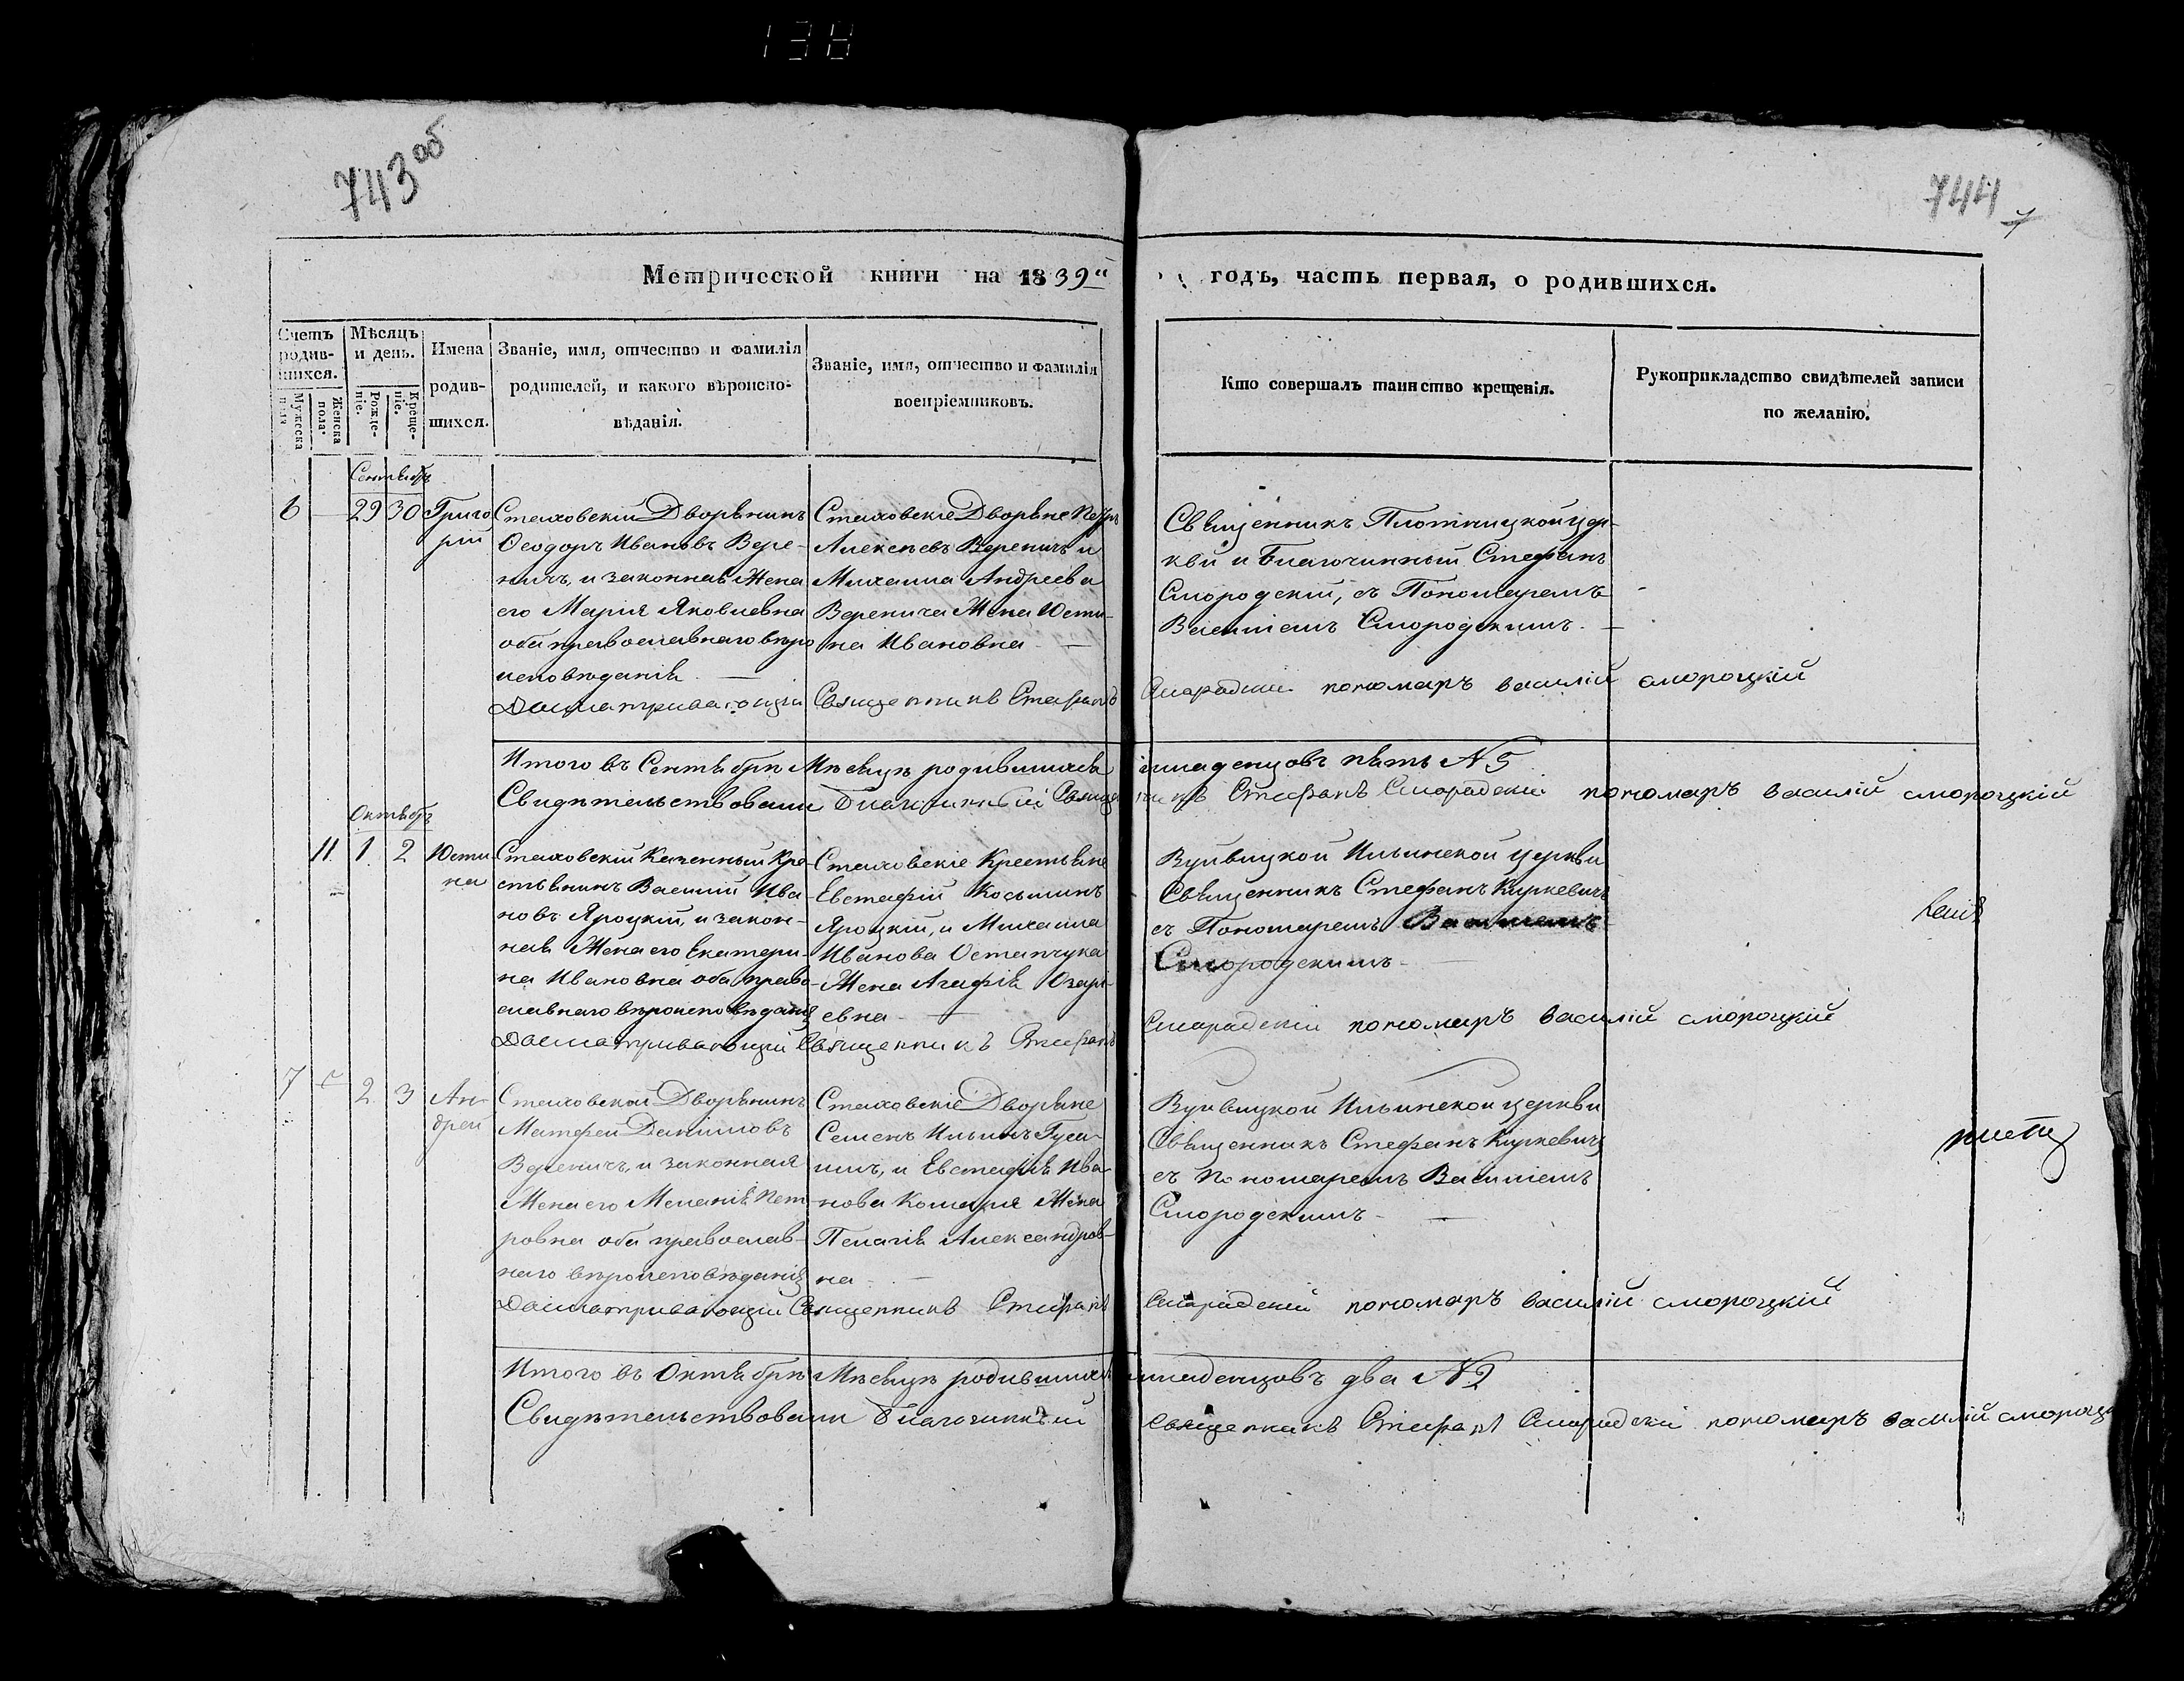 138
743 об
744
Метрической книги на 1839й годъ, часть первая, о родившихся.
Счетъ родив-шихся.
Мужеска пола
Женска пола.
Мѣсяцъ и день.
Рожде-ніе.
Креще-ніе.
Имена родив-шихся.
Званіе, имя, отчество и фамилія родителей, и какого вѣроиспо-вѣданія.
Званіе, имя, отчество и фамилія воспріемниковъ.
Кто совершалъ таинство крещенія.
Рукоприкладство свидѣтелей записи по желанію.
Сентябрь
6 — 29 30 Григо
рій
Стаховскій Дворянинъ
Ѳеодоръ Ивановъ Вере-
ничъ, и законная Жена
его Марія Яковлевна
оба православнаго вѣро
исповѣданія. —
Стаховскіе Дворяне Петръ
Алексѣевъ Вереничъ и
Михаила Андреева
Веренича Жена Юсти-
на Ивановна —
Священникъ Плотницкой цер-
кви и Благочинный Стефанъ
Смородскій, съ Пономаремъ
Василіемъ Смородскимъ. —
Досматривающій Священникъ Стефанъ Смородскій пономаръ василій смороцкій
Итого въ Сентябрѣ Мѣсяцѣ родившихся младенцовъ пять № 5
Свидѣтельствовали Благочинный Священникъ Стефанъ Смородскій пономаръ василій смороцкій
Октябрь
11 1 2 Юсти
на
Стаховскій Казенный Кре
стьянинъ Василій Ива
новъ Яроцкій, и закон-
ная Жена его Екатери-
на Ивановна оба право-
славнаго вѣроисповѣданія
Стаховскіе Крестьяне
Евстафій Косьминъ
Яроцкій, и Михаила
Иванова Остапчука
Жена Агафія Озарі-
евна —
Вуйвицкой Ильинской церкви
Священникъ Стефанъ Киркевичъ
съ Пономаремъ Василіемъ
Смородскимъ —
Досматривающій Священникъ Стефанъ Смородскій пономаръ василій смороцкій
7 2 3 Ан-
дрей
Стаховской Дворянинъ
Матфей Даниловъ
Вереничъ, и законная
Жена его Меланія Пет
ровна оба православ-
наго вѣроисповѣданія
Стаховскіе Дворяне
Семенъ Ильинъ Гуса-
личъ, и Евстафія Ива-
нова Комаря Жена
Пелагія Александров-
на —
Вуйвицкой Ильинской церкви
Священникъ Стефанъ Киркевичъ
съ Пономаремъ Василіемъ
Смородскимъ —
Досматривающій Священникъ Стефанъ Смородскій пономаръ василій смороцкій
Итого въ Октябрѣ Мѣсяцѣ родившихся младенцовъ два № 2
Свидѣтельствовали Благочинный священникъ Стефанъ Смородскій пономаръ василій смороцк